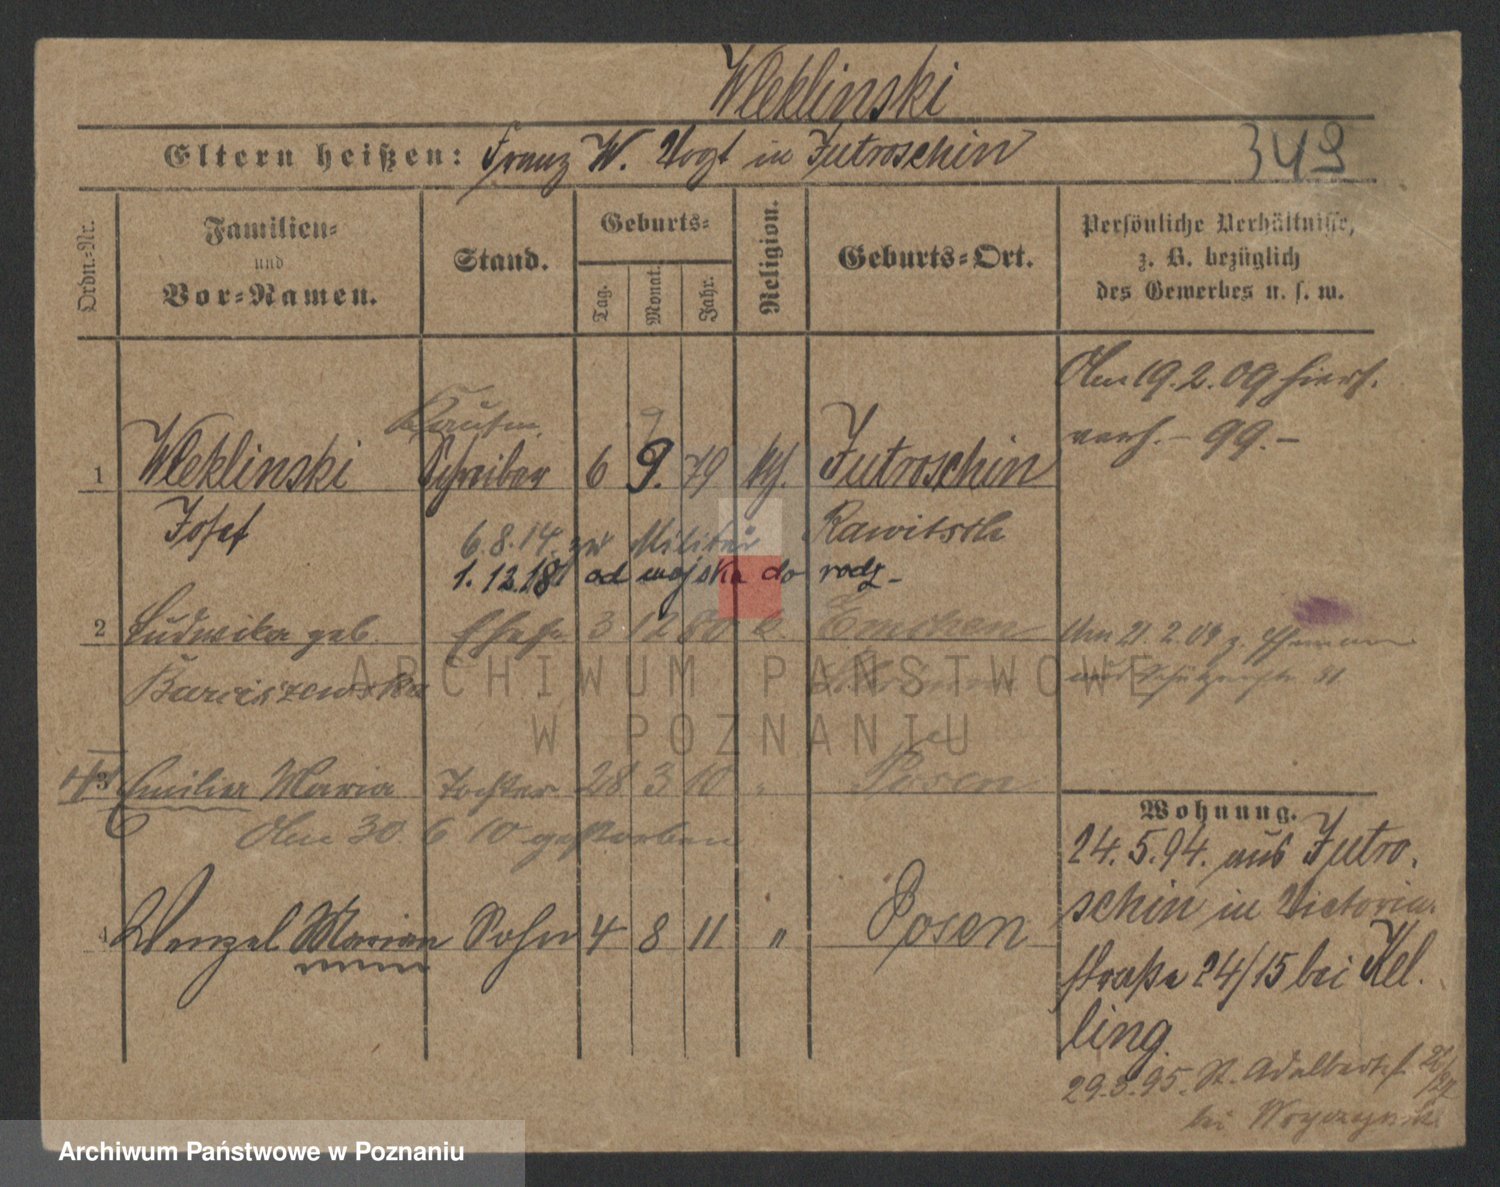 Wleklinski
Eltern heißen: Franz W. Vogt in Jutroschin
349
Ordn.-Nr.
Familien-
und
Vor-Namen.
Stand.
Geburts-
Tag.
Monat.
Jahr.
Religion.
Geburts-Ort.
Persönliche Verhältnisse,
z. B. bezüglich
des Gewerbes u. s. w.
Am 19. 2. 09 hiers.
verh. - 99. -
Kaufm. 9
1 Wleklinski Schreiber 6 9. 79 kth. Jutroschin
Josef 6.8.14. zur Militär Rawitsch
1.12.18 od wojska do rodz.
2 Ludwika geb. Ehefr. 3 12 80 k. Emchen
Am 21. 2. 09 z.
Barciszewska
und Schützenstr. 31
3 Emilie Maria Tochter 28 3 10 " Posen
Am 30. 6 10 gestorben
4 Wenzel Marian Sohn 4 8 11 " Posen
Wohnung.
24. 5. 94. aus Jutro-
schin in Victoria-
straße 24/15 bei Kel-
ling.
29.3.95. St. Adalbertst.
bei
ARCHIWUM PAŃSTWOWE
W POZNANIU
Archiwum Państwowe w Poznaniu